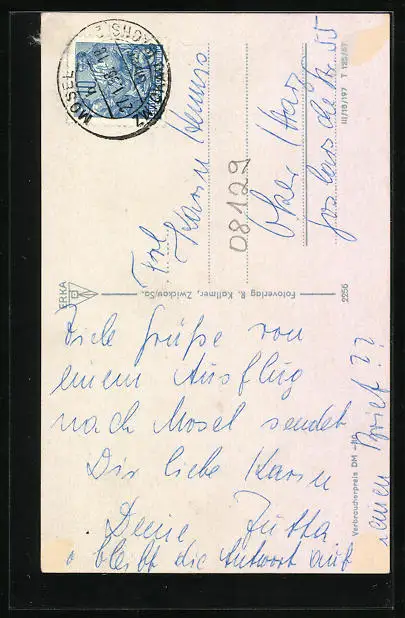 Frl.
Karin
Oker / Harz
08129
ERKA
Fotoverlag R. Kallmer, Zwickau/Sa.
2256
III/18/197 T 125/57
Verbraucherpreis DM
MOSEL
Viele Grüße von
einem Ausflug
nach Mosel sendet
Dir liebe Karin
Deine Jutta
bleibt die Antwort auf
meinen Brief??